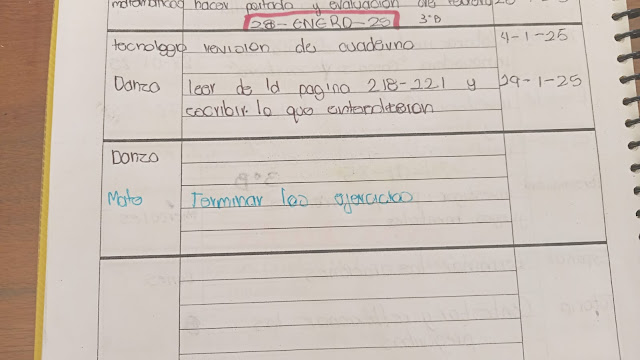 matematicas hacer portada y evaluación de
28-ENERO-25 3°B
tecnologia revision de cuaderno 4-1-25
Danza leer de la pagina 218-221 y 29-1-25
escribir lo que entendieron
Danza
Mate Terminar los ejercicios